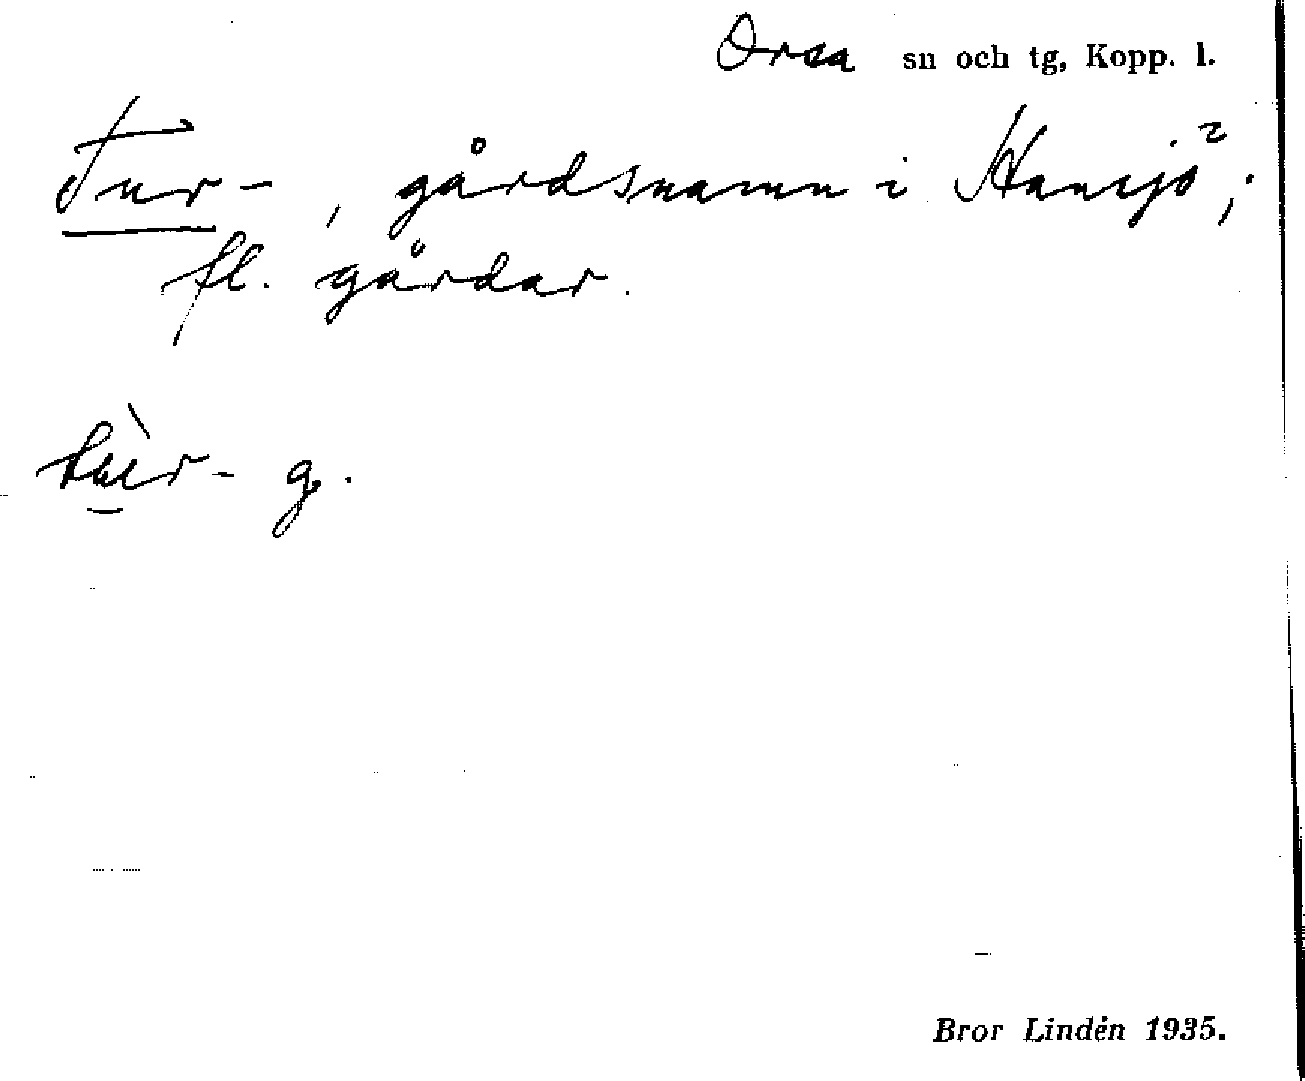 Orsa sn och tg, Kopp. l.
Tur-, gårdsnamn i Hansjö²;
fl. gårdar.
tùr- g.
Bror Lindén 1935.